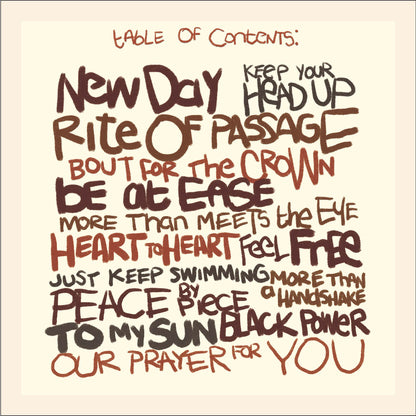 table OF Contents:
New Day
KEEP YOUR
HEAD UP
Rite OF PASSAGE
BOUT FOR the CROWN
be at EASE
MORE Than MEETS the EYE
HEART to HEART FeeL FREE
JUST KEEP SWIMMING
MORE THAN
a HANDSHAKE
PEACE BY PIECE
TO MY SUN BLACK POWER
OUR PRAYER FOR YOU